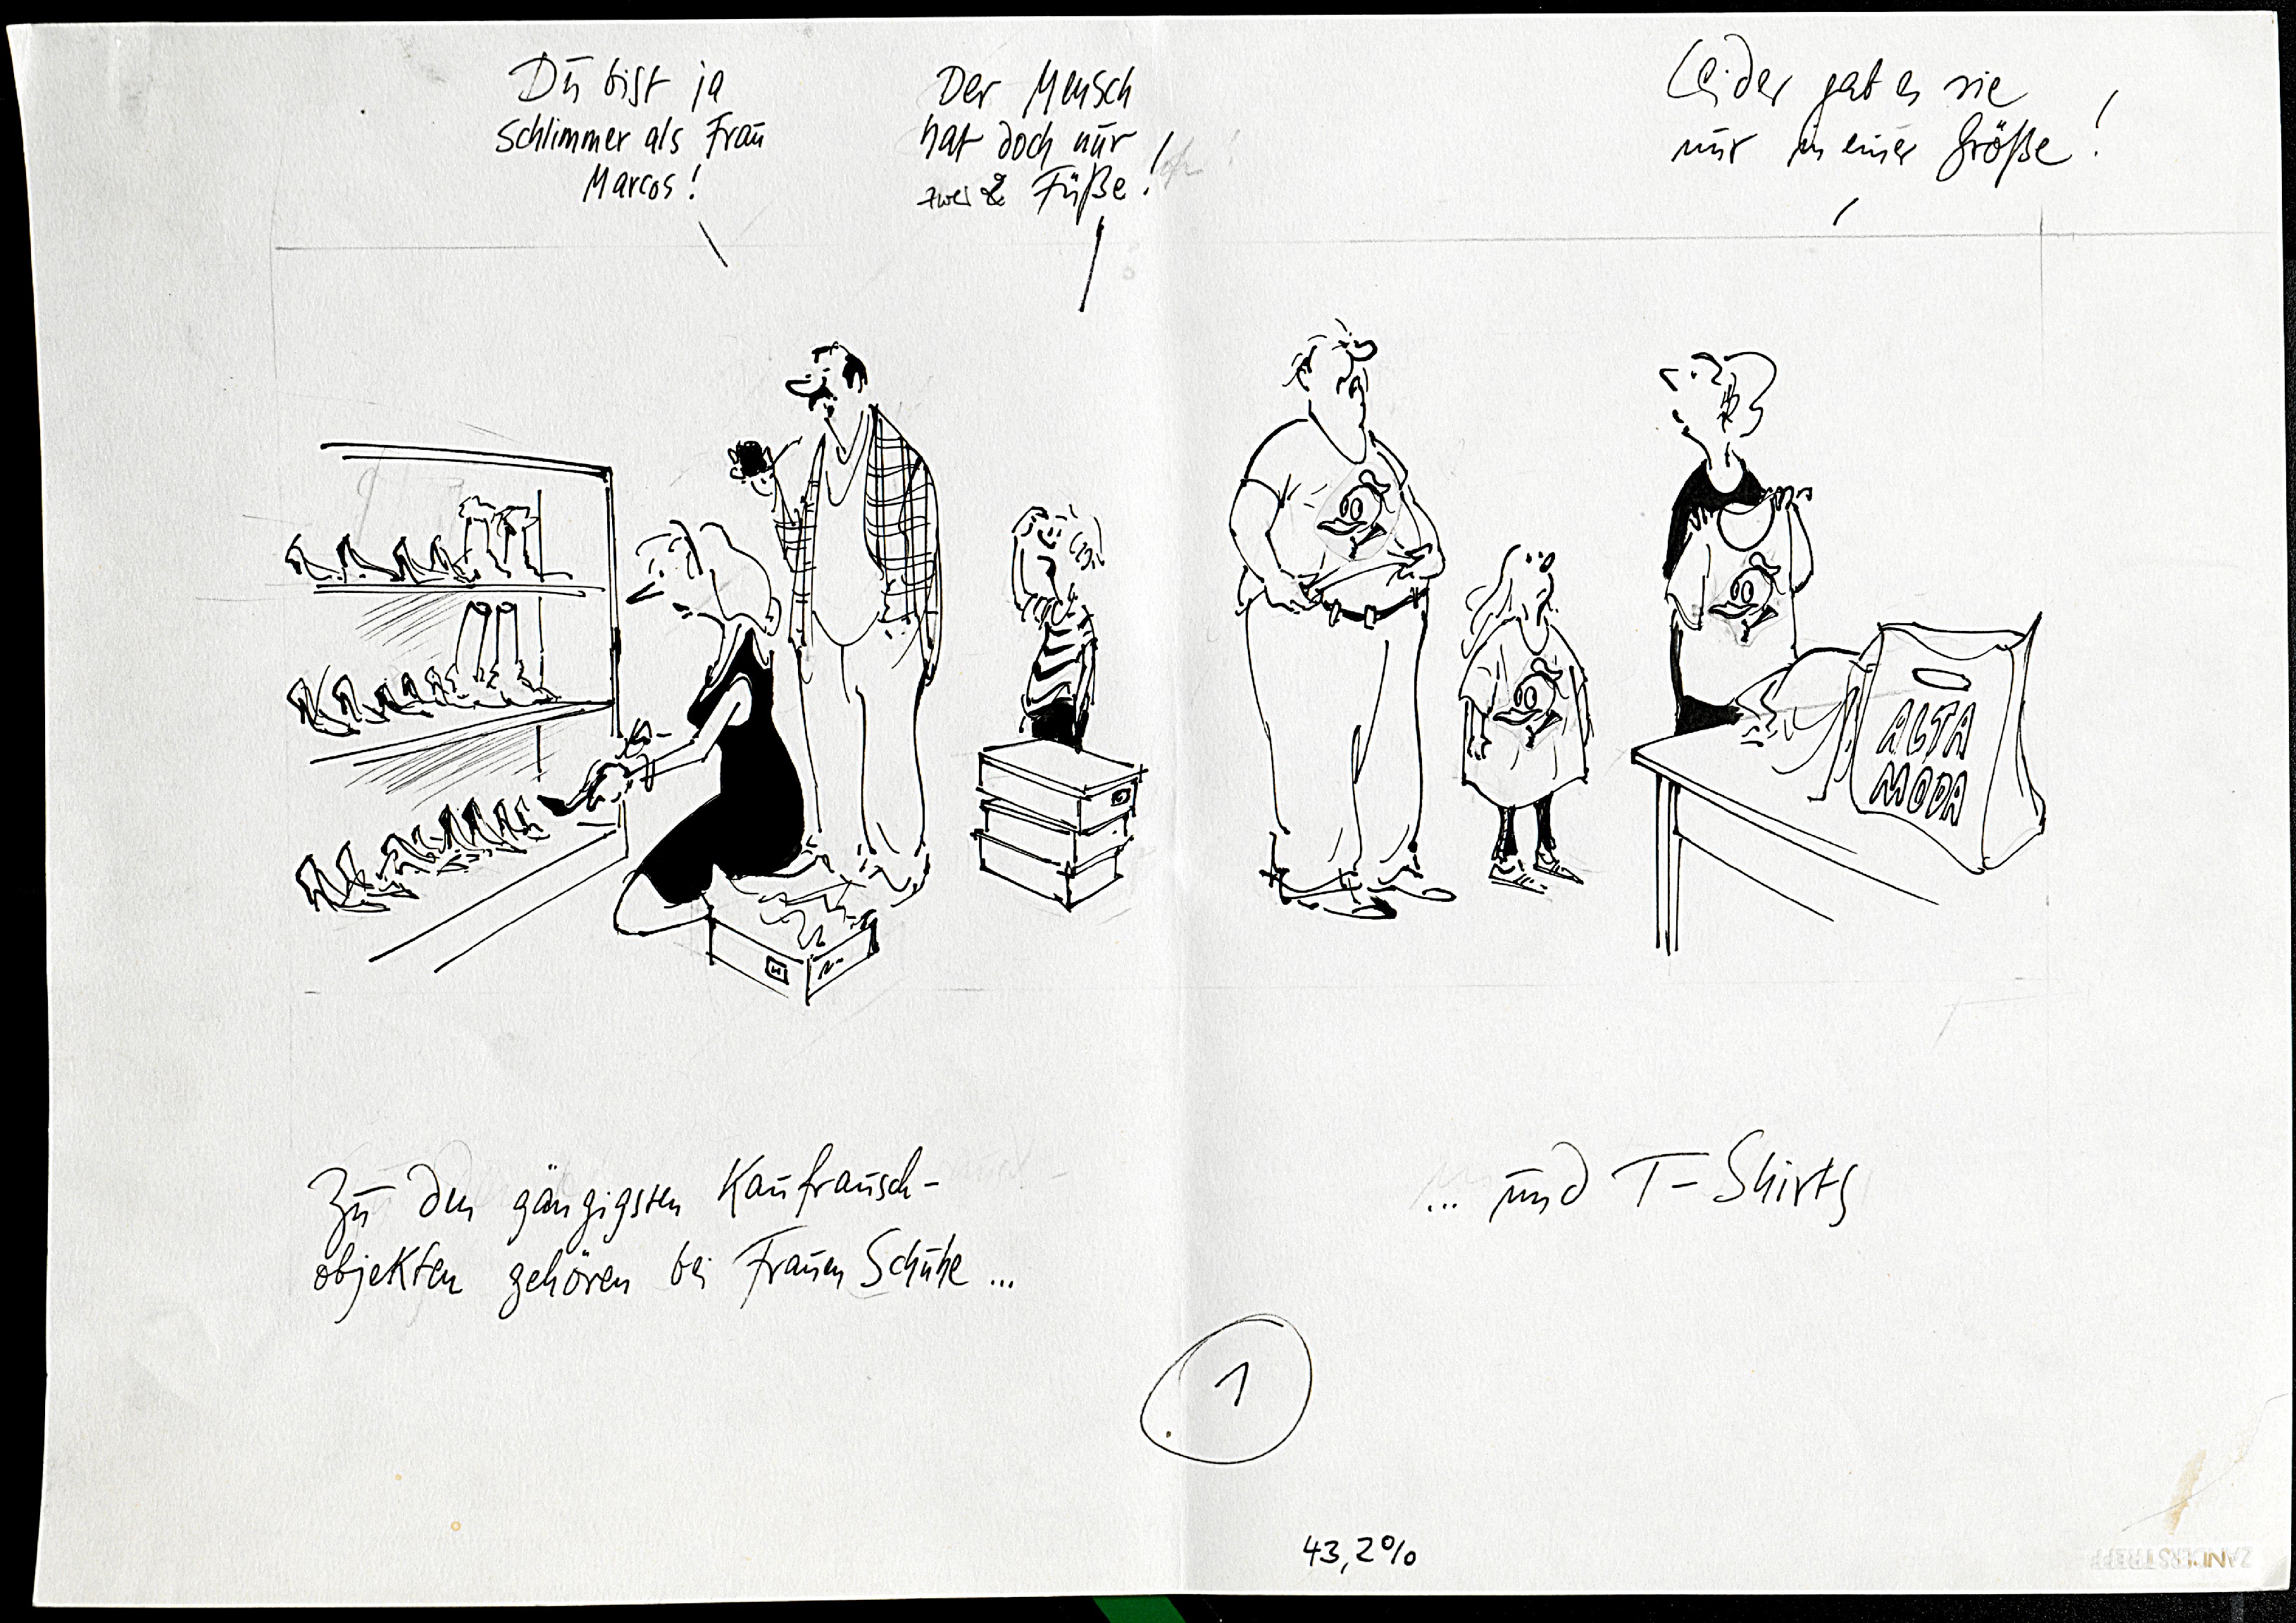 Du bist ja
schlimmer als Frau
Marcos!
Der Mensch
hat doch nur
zwei 2 Füße!
Leider gab es sie
nur in einer Größe!
ALTA
MODA
Zu den gängigsten Kaufrausch-
objekten gehören bei Frauen Schuhe ...
... und T-Shirts
1
43,2%
ZANDERSTREFF